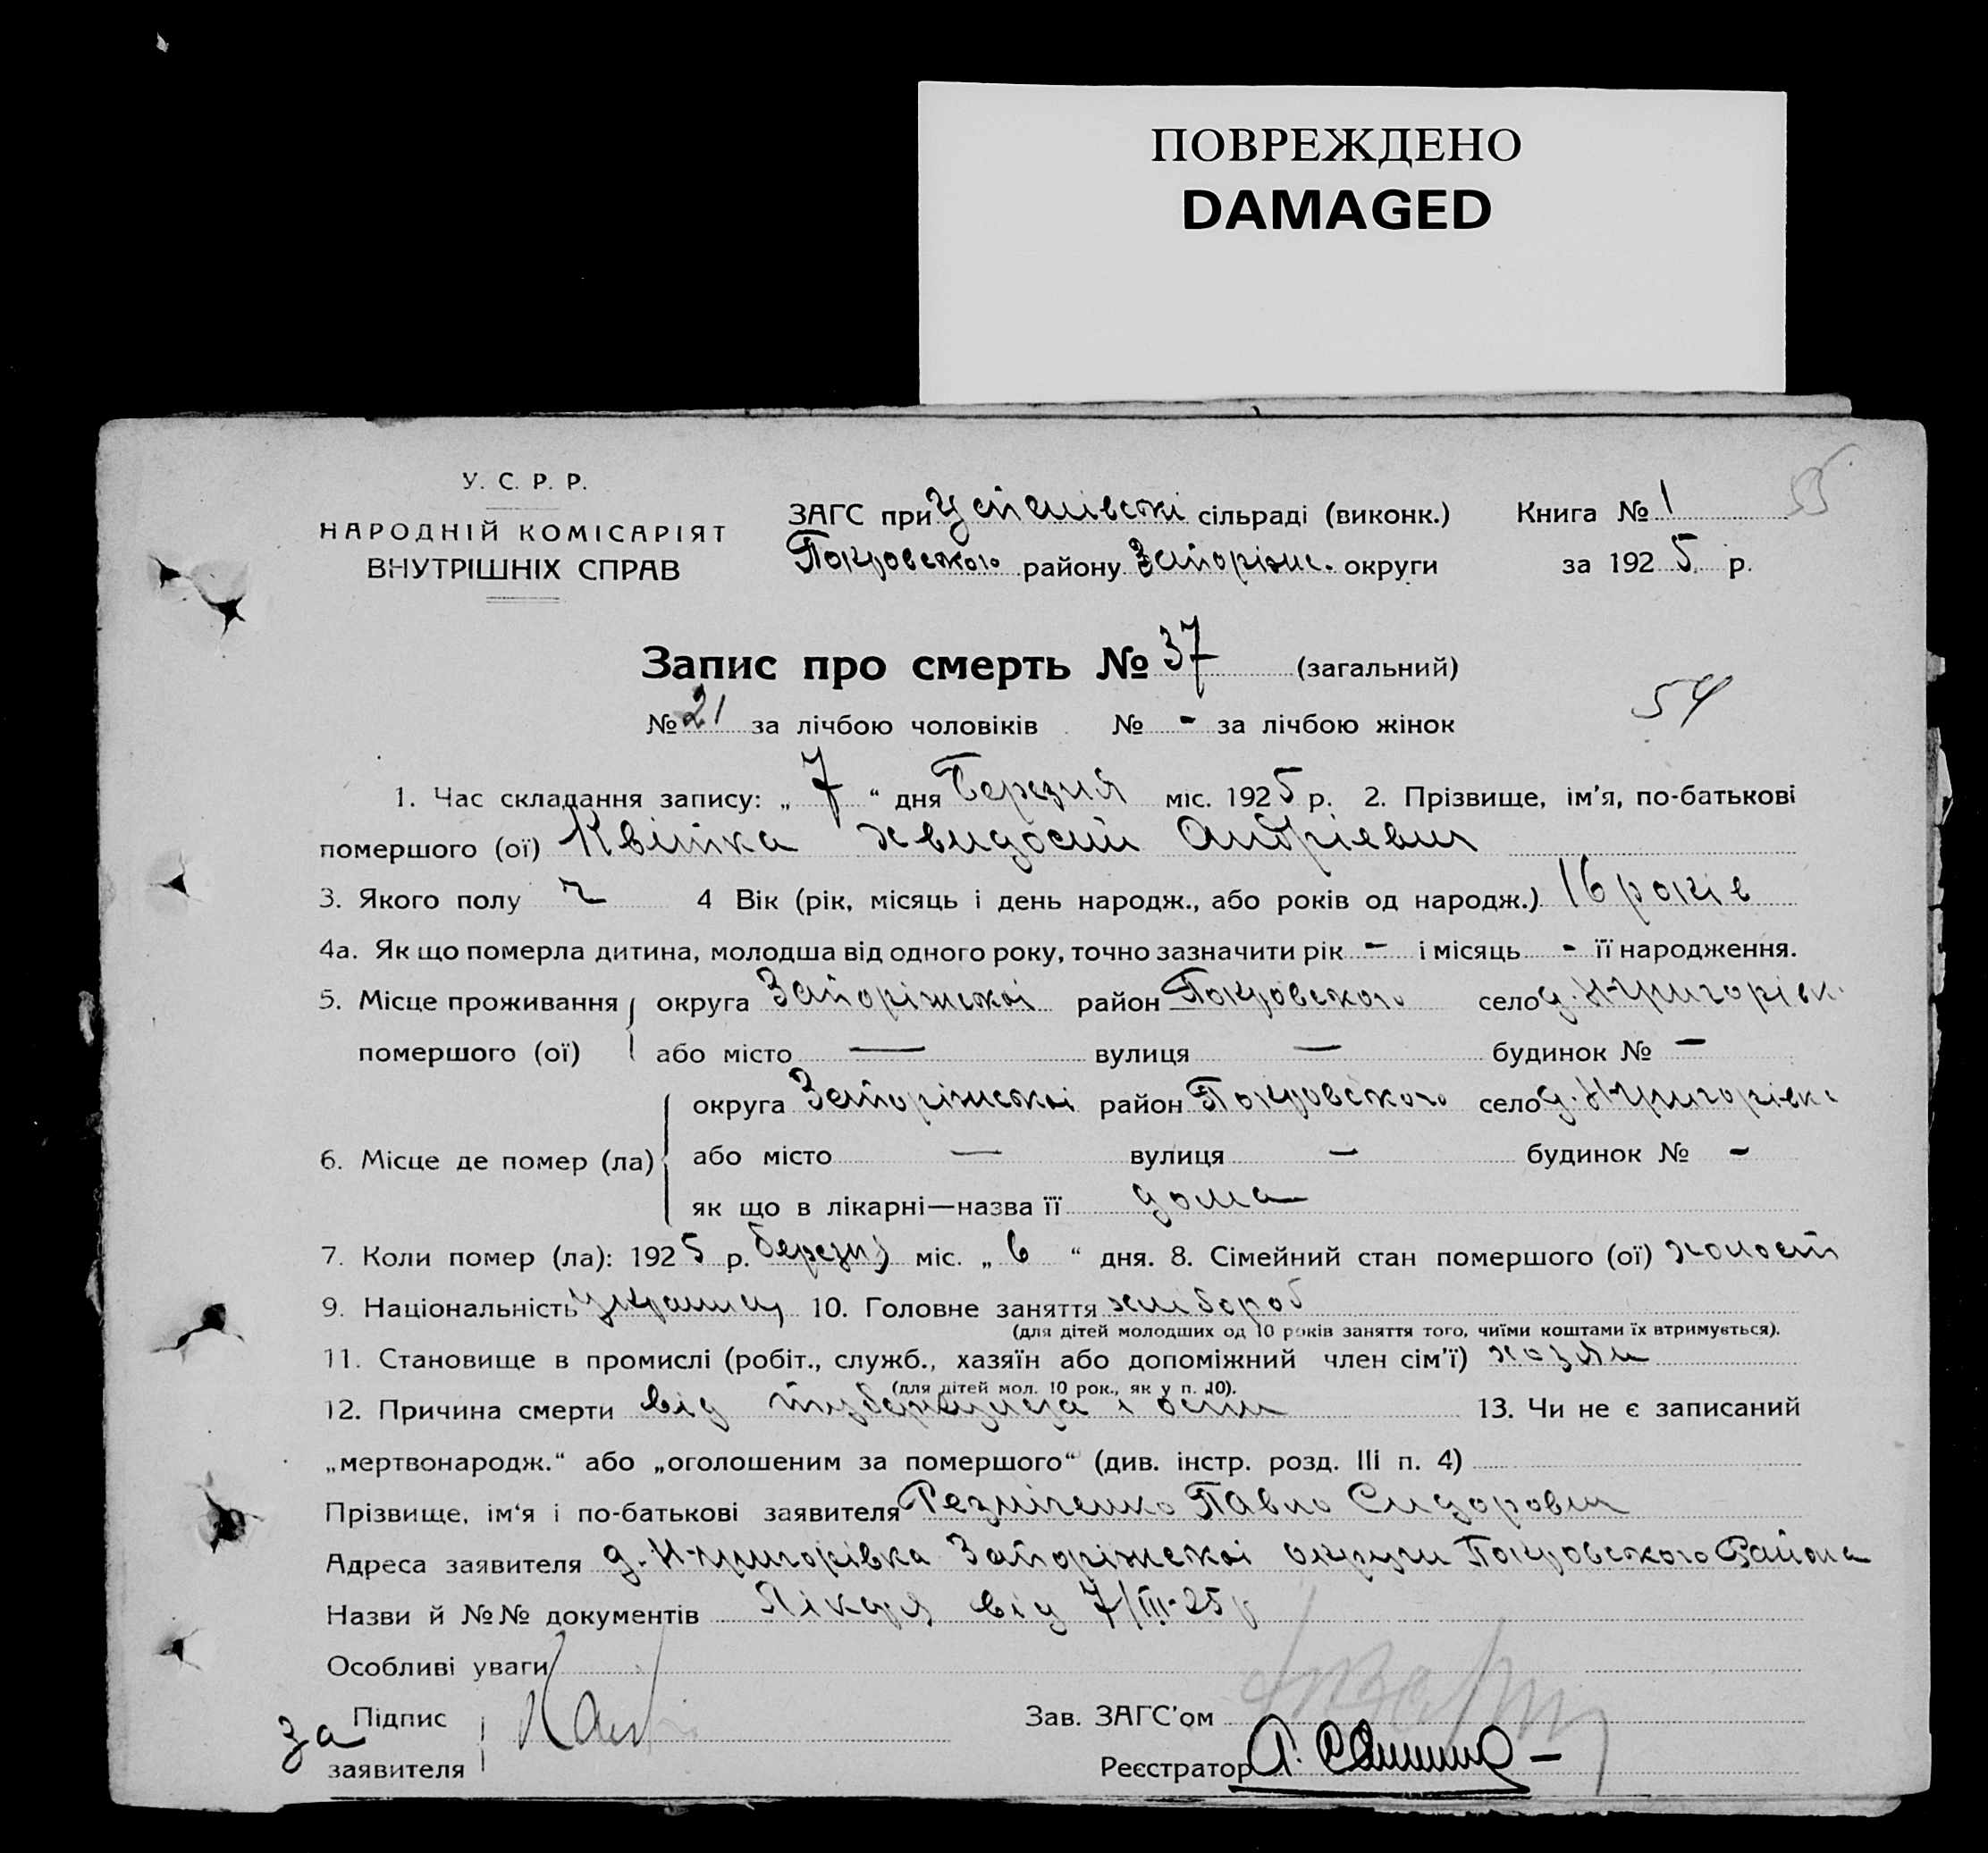 ПОВРЕЖДЕНО
DAMAGED
У. С. Р. Р.
НАРОДНІЙ КОМІСАРІЯТ
ВНУТРІШНІХ СПРАВ
ЗАГС при Успенівскі сільраді (виконк.) Книга № 1 55
Покровского району Запоріж. округи за 1925 р.
Запис про смерть № 37 (загальний)
№ 21 за лічбою чоловіків № - за лічбою жінок 54
1. Час складання запису: „ 7 “ дня Березня міс. 1925 р. 2. Прізвище, ім'я, по-батькові
помершого (ої) Квітка Хвидосий Андріевич
3. Якого полу ч 4 Вік (рік, місяць і день народж., або років од народж.) 16 років
4а. Як що померла дитина, молодша від одного року, точно зазначити рік - і місяць - її народження.
5. Місце проживання округа Запоріжскоі район Покровского село д. Н-Григорівк.
помершого (ої) або місто — вулиця — будинок № —
округа Запоріжскоі район Покровского село д. Н-Григорівк
6. Місце де помер (ла) або місто — вулиця — будинок № -
як що в лікарні—назва її дома
7. Коли помер (ла): 1925 р. березня міс. „ 6 “ дня. 8. Сімейний стан помершого (ої) холост
9. Національність 10. Головне заняття хлібороб
(для дітей молодших од 10 років заняття того, чиїми коштами їх втримується).
11. Становище в промислі (робіт., служб., хазяїн або допоміжний член сім'ї) хозяин
(для дітей мол. 10 рок., як у п. 10).
12. Причина смерти від туберкулеза і 13. Чи не є записаний
„мертвонародж.“ або „оголошеним за помершого“ (див. інстр. розд. III п. 4)
Прізвище, ім'я і по-батькові заявителя Резніченко Павло Сидорович
Адреса заявителя д. Н-Григорівка Запоріжскоі округи Покровского Района
Назви й №№ документів Лікаря від 7/III-25 р
Особливі уваги
За Підпис
заявителя
Зав. ЗАГС'ом
Реєстратор